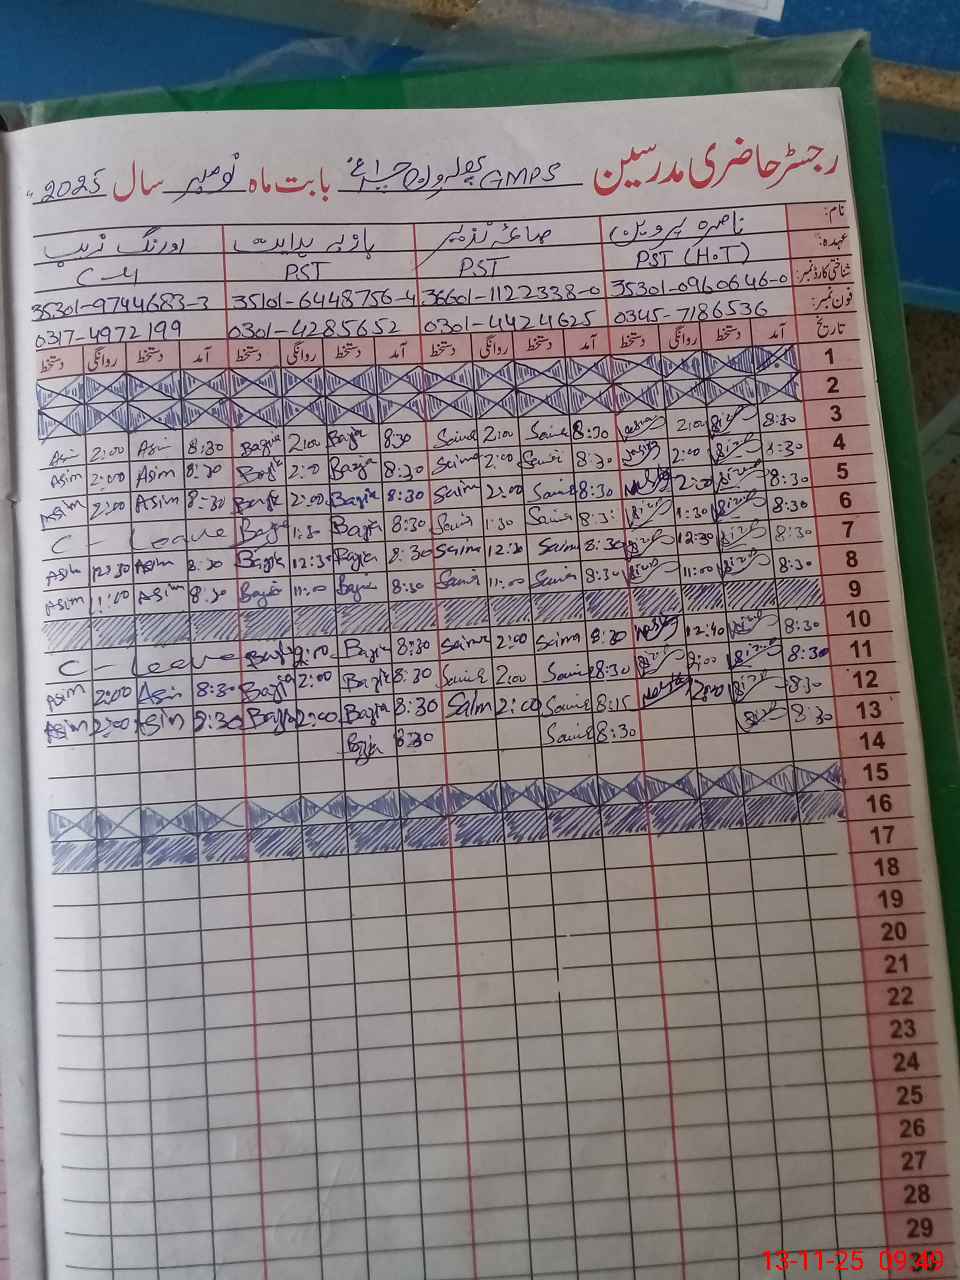 رجسٹر حاضری مدرسین GMPS بابت ماہ نومبر سال 2025
نام: ناصرہ پروین صائمہ نذیر بازیہ ہدایت اورنگ زیب
عہدہ: PST (H.T) PST PST C-4
شناختی کارڈ نمبر: 35301-0960646-0 36601-1122338-0 35101-6448756-4 35301-9744683-3
فون نمبر: 0345-7186536 0301-4424625 0301-4285652 0317-4972199
تاریخ آمد دستخط روانگی دستخط آمد دستخط روانگی دستخط آمد دستخط روانگی دستخط آمد دستخط روانگی دستخط
1
2
3 8:30 2:00 8:30 Saima 2:00 Saima 8:30 Bazia 2:00 Bazia 8:30 Asim 2:00 Asim
4 8:30 2:00 8:30 Saima 2:00 Saima 8:30 Bazia 2:00 Bazia 8:30 Asim 2:00 Asim
5 8:30 2:00 8:30 Saima 2:00 Saima 8:30 Bazia 2:00 Bazia 8:30 Asim 2:00 Asim
6 8:30 1:30 8:30 Saima 1:30 Saima 8:30 Bazia 1:30 Bazia C - Leave
7 8:30 12:30 8:30 Saima 12:30 Saima 8:30 Bazia 12:30 Bazia 8:30 Asim 12:30 Asim
8 8:30 11:00 8:30 Saima 11:00 Saima 8:30 Bazia 11:00 Bazia 8:30 Asim 11:00 Asim
9
10 8:30 12:40 8:30 Saima 2:00 Saima 8:30 Bazia 2:00 Bazia C - Leave
11 8:30 2:00 8:30 Saima 2:00 Saima 8:30 Bazia 2:00 Bazia 8:30 Asim 2:00 Asim
12 8:30 2:00 8:15 Saima 2:00 Saima 8:30 Bazia 2:00 Bazia 8:30 Asim 2:00 Asim
13 8:30 8:30 Saima 8:30 Bazia
14
15
16
17
18
19
20
21
22
23
24
25
26
27
28
29
30
13-11-25 09:49